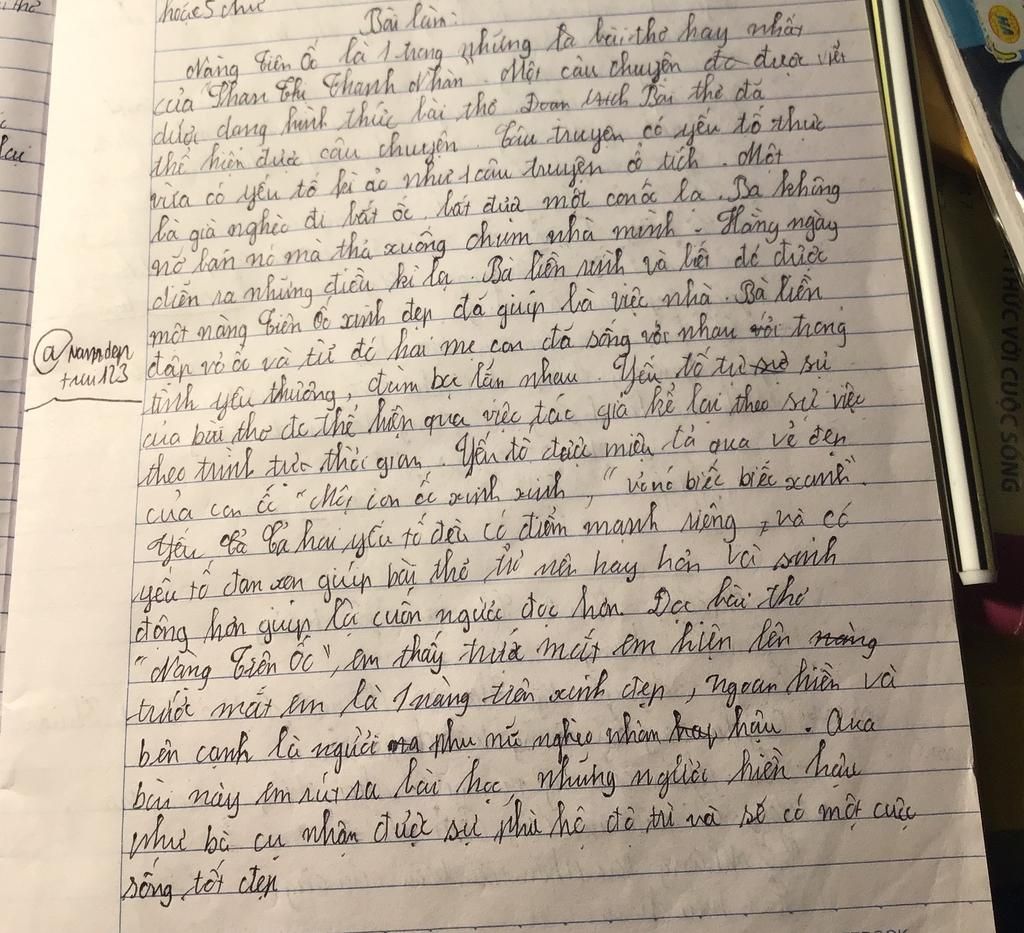 hoặc 5 chữ
Bài làm:
Nàng Tiên Ốc là 1 trong những là bài thơ hay nhất
của Phan Thị Thanh Nhàn. Một câu chuyện đc được viết
dưới dạng hình thức bài thơ. Đoạn trích Bài thơ đã
thể hiện được câu chuyện. Câu truyện có yếu tố thực
vừa có yếu tố kì ảo như 1 câu truyện cổ tích. Một
bà già nghèo đi bắt ốc, bắt đưa một con ốc lạ. Bà không
nỡ bán nó mà thả xuống chum nhà mình. Hằng ngày
diễn ra những điều kì lạ. Bà liền rình và biết đó được
một nàng Tiên Ốc xinh đẹp đã giúp bà việc nhà. Bà liền
đập vỏ ốc và từ đó hai mẹ con đã sống với nhau với trong
@ namdep
tình yêu thương, đùm bọc lẫn nhau. Yếu tố tự sự sự
truu123
của bài thơ đc thể hiện qua việc tác giả kể lại theo sự việc
theo trình tựa thời gian. Yếu tố được miêu tả qua vẻ đẹp
của con ốc "Một con ốc xinh xinh, "vỏ nó biếc biếc xanh".
Yếu Cả Cả hai yếu tố đều có điểm mạnh riêng, và có
yếu tố đan xen giúp bài thơ trở nên hay hơn và sinh
động hơn giúp lôi cuốn người đọc hơn Đọc bài thơ
"Nàng Tiên Ốc", em thấy trước mắt em hiện lên nàng
trước mắt em là 1 nàng tiên xinh đẹp, ngoan hiền và
bên cạnh là người phụ nữ nghèo nhân hậu. Qua
bài này em rút ra bài học, những người hiền hậu
như bà cụ nhận được sự phù hộ độ trì và sẽ có một cuộc
sống tốt đẹp
THỨC VỚI CUỘC SỐNG